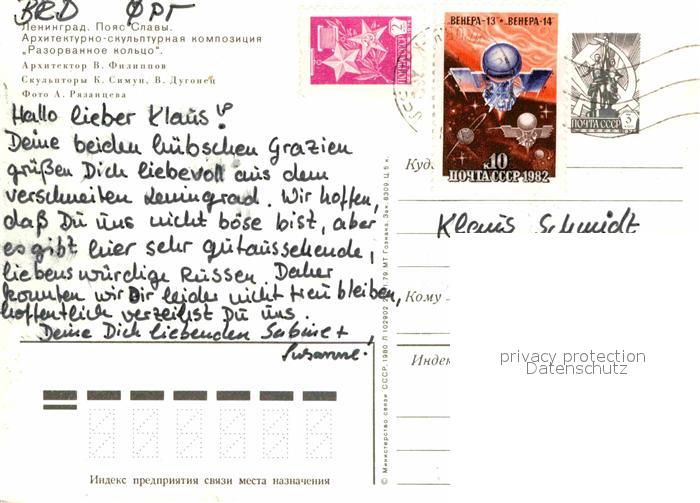 BRD ФРГ
Ленинград. Пояс Славы.
Архитектурно-скульптурная композиция
„Разорванное кольцо".
Архитектор В. Филиппов
Скульпторы К. Симун, В. Дугонец
Фото А. Рязанцева
Hallo lieber Klaus!
Deine beiden hübschen Grazien
grüßen Dich liebevoll aus dem
verschneiten Leningrad. Wir hoffen,
daß Du uns nicht böse bist, aber
es gibt hier sehr gutaussehende,
liebenswürdige Russen. Daher
konnten wir Dir leider nicht treu bleiben,
hoffentlich verzeihst Du uns.
Deine Dich liebenden Sabine +
Susanne.
Индекс предприятия связи места назначения
© Министерство связи СССР. 1980 Л 102902 79. МТ Гознака. Зак. 6309. Ц. 5 к.
2
ПОЧТА СССР
ВЕНЕРА-13 • ВЕНЕРА-14
10
ПОЧТА СССР·1982
ПОЧТА СССР 3
Куд
Klaus Schmidt
Кому
Индек
privacy protection
Datenschutz